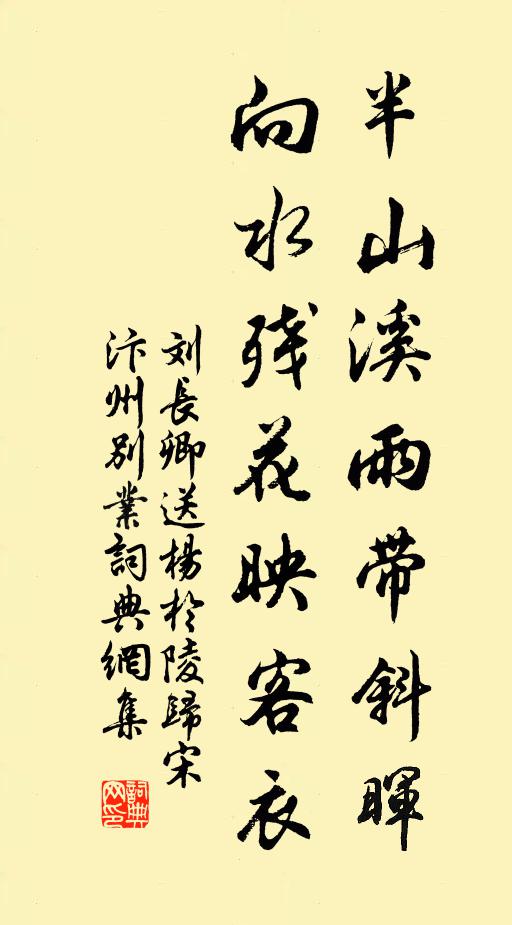 半山溪雨带斜暉
向水残花映客衣
刘長卿送楊於陵歸宋
汴州别業詞典網集
詞典网印